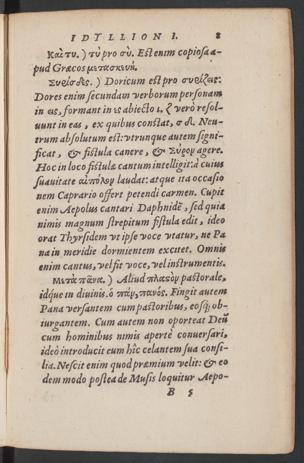 IDYLLION I. 8
Καὶ τυ.) τὺ pro σὺ. Est enim copiosa a-
pud Græcos μετασκευή.
Συρίσδες.) Doricum est pro συρίζεις.
Dores enim secundam verborum personam
in εις, formant in ες abiecto ι. ζ verò resol-
uunt in eas, ex quibus constat, σ δ. Neu-
trum absolutum est: vtrunque autem signi-
ficat, & fistula canere, & Σύρον agere.
Hoc in loco fistulæ cantum intelligit: à cuius
suauitate αἰπόλον laudat: atque ita occasio
nem Caprario offert petendi carmen. Cupit
enim Aepolus cantari Daphnidē, sed quia
nimis magnum strepitum fistula edit, ideo
orat Thyrsidem vt ipse voce vtatur, ne Pa
na in meridie dormientem excitet. Omnis
enim cantus, vel fit voce, vel instrumentis.
Μετὰ πᾶνα.) Aliud πλασὸν pastorale,
idque in diuinis. ὁ πᾶν, πανός. Fingit autem
Pana versantem cum pastoribus, eosq; ob-
iurgantem. Cum autem non oporteat Deū
cum hominibus nimis apertè conuersari,
ideò introducit eum hîc celantem sua consi-
lia. Nescit enim quod præmium velit: & eo
dem modo postea de Musis loquitur Aepo-
B 5